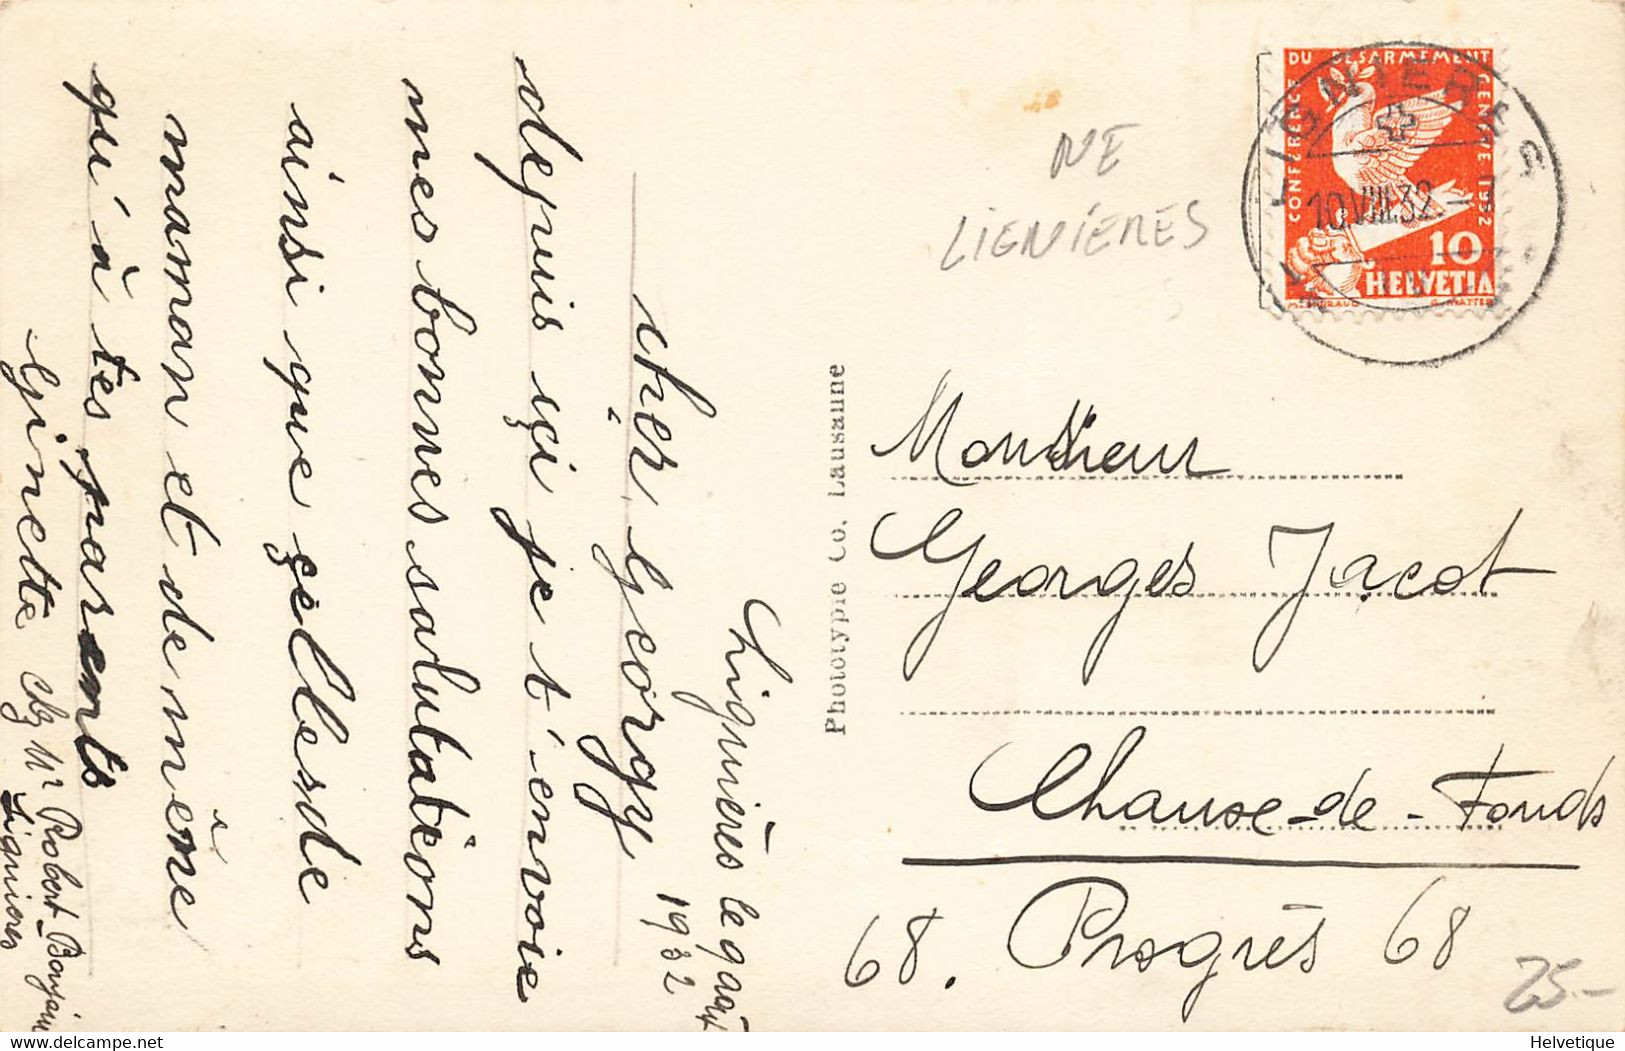 Lignières le 9 août
1932
chèr Georgy
depuis içi je t'envoie
mes bonnes salutations
ainsi que çelles de
maman et de même
qu'à tes parents
Ginette chz Mr Robert-Bonjour
Lignières
Phototypie Co. Lausanne
NE
LIGNIÈRES
CONFÉRENCE DU DÉSARMEMENT GENÈVE 1932
10
HELVETIA
LIGNIERES
10.VIII.32.-7
Monsieur
Georges Jacot
Chaux-de-Fonds
68. Progrès 68
25.-
delcampe.net
Helvetique